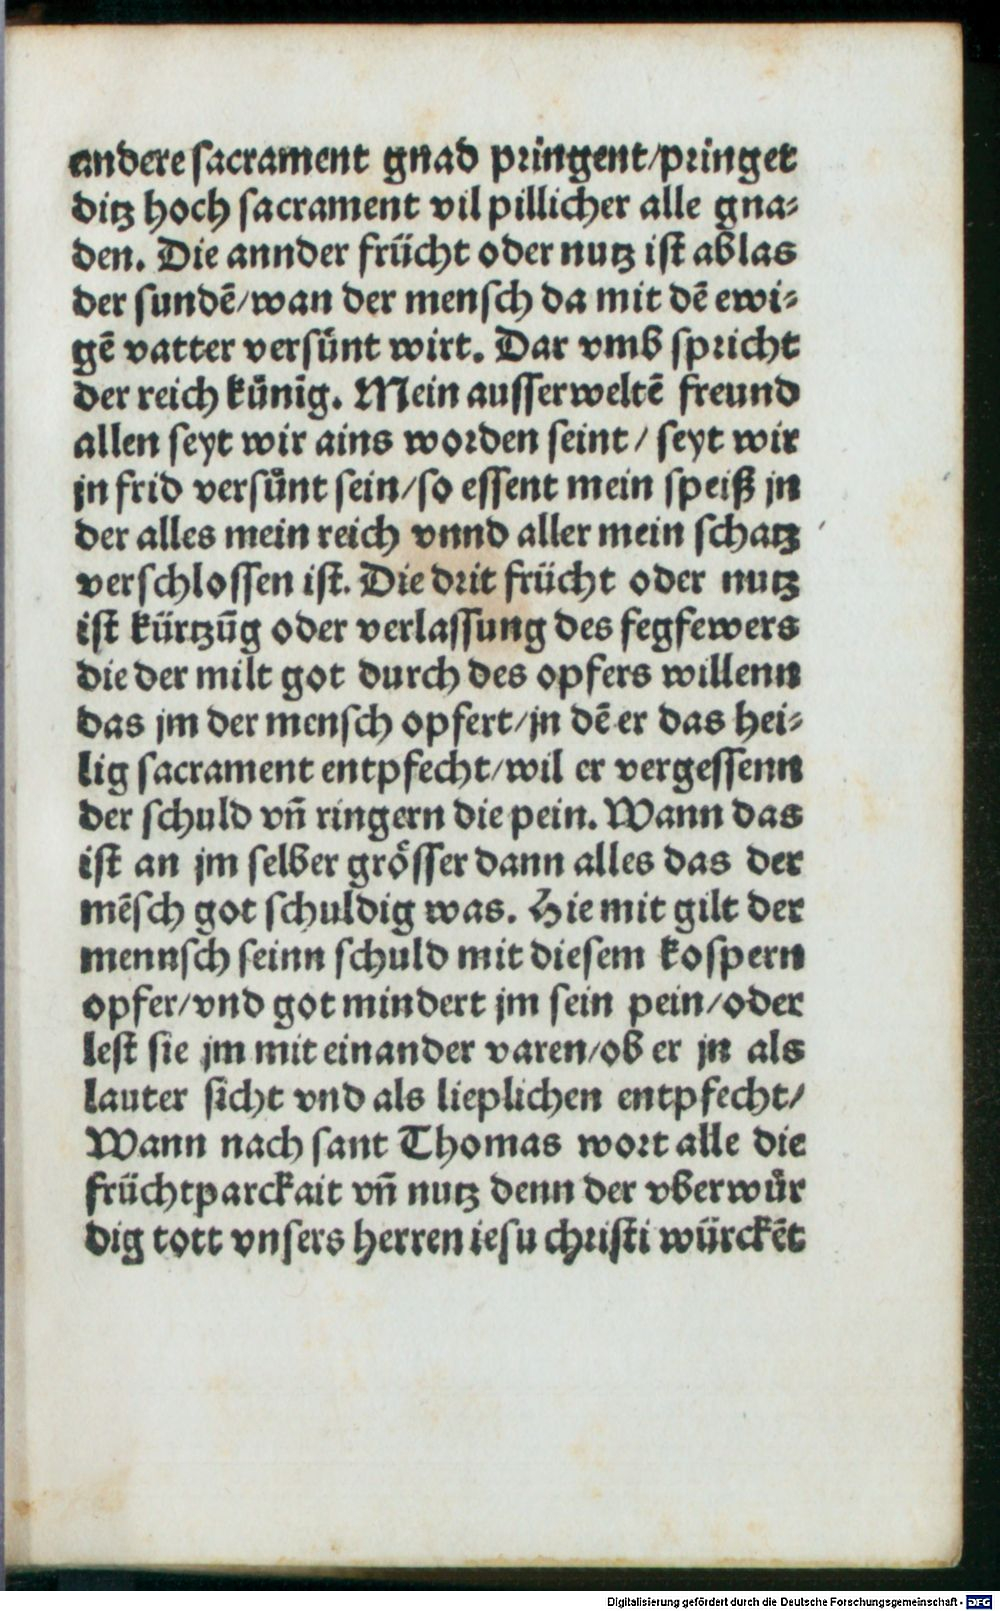 andere sacrament gnad pringent/pringet
ditz hoch sacrament vil pillicher alle gna-
den. Die annder frücht oder nutz ist ablas
der sundē/wan der mensch da mit dē ewi-
gē vatter versünt wirt. Dar vmb spricht
der reich künig. Mein ausserweltē freund
allen seyt wir ains worden seint/ seyt wir
jn frid versünt sein/so essent mein speiß jn
der alles mein reich vnnd aller mein schatz
verschlossen ist. Die drit frücht oder nutz
ist kürtzūg oder verlassung des fegfewers
die der milt got durch des opfers willenn
das jm der mensch opfert/jn dē er das hei-
lig sacrament entpfecht/wil er vergessenn
der schuld vn̄ ringern die pein. Wann das
ist an jm selber grösser dann alles das der
mēsch got schuldig was. Hie mit gilt der
mennsch seinn schuld mit diesem kospern
opfer/vnd got mindert jm sein pein/oder
lest sie jm mit einander varen/ob er jn als
lauter sicht vnd als lieplichen entpfecht/
Wann nach sant Thomas wort alle die
früchtparckait vn̄ nutz denn der vberwür
dig tott vnsers herren iesu christi würckēt
Digitalisierung gefördert durch die Deutsche Forschungsgemeinschaft - DFG